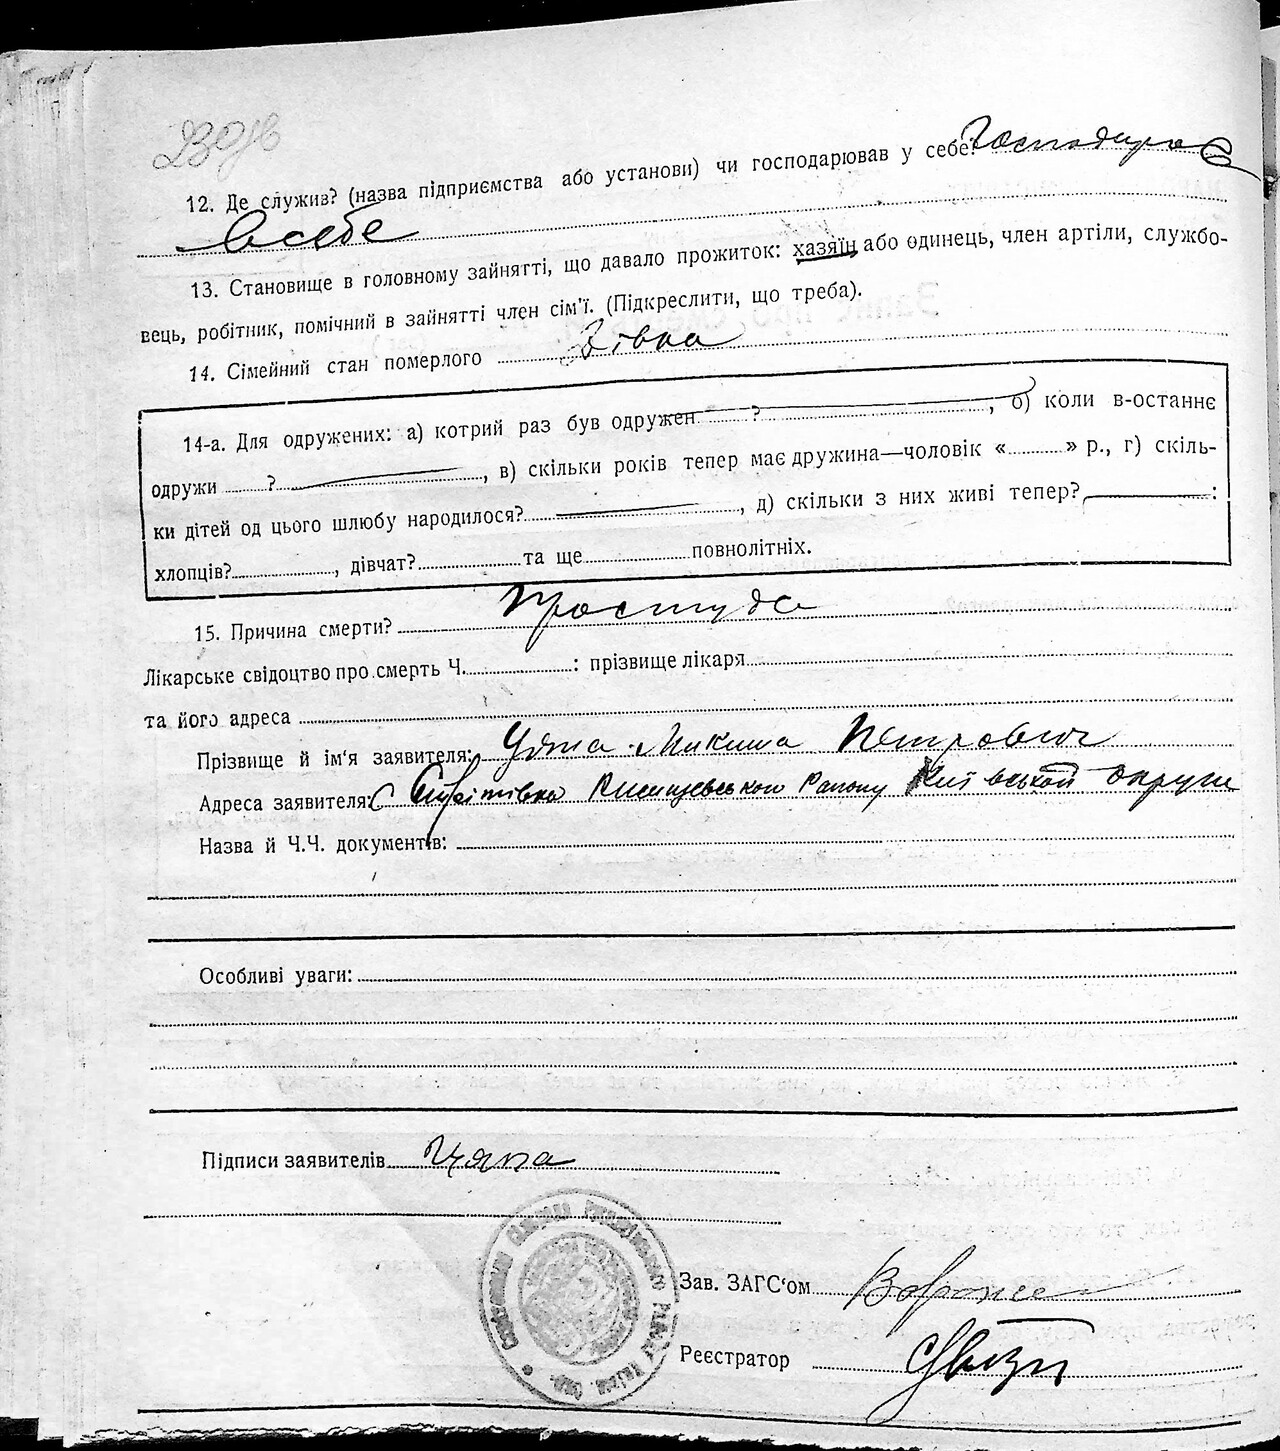 12. Де служив? (назва підприємства або установи) чи господарював у себе? Господарює
в себе
13. Становище в головному зайнятті, що давало прожиток: хазяїн або одинець, член артіли, службо-
вець, робітник, помічний в зайнятті член сім'ї. (Підкреслити, що треба).
14. Сімейний стан померлого Дівка
14-а. Для одружених: а) котрий раз був одружен ?, б) коли в-останнє
одружи ?, в) скільки років тепер має дружина—чоловік « » р., г) скіль-
ки дітей од цього шлюбу народилося?, д) скільки з них живі тепер? :
хлопців?, дівчат? та ще повнолітніх.
15. Причина смерти? Простуда
Лікарське свідоцтво про смерть Ч. : прізвище лікаря
та його адреса
Прізвище й ім'я заявителя: Цяпа Микита Петрович
Адреса заявителя: Району Київськой округи
Назва й Ч.Ч. документів:
Особливі уваги:
Підписи заявителів Цяпа
Зав. ЗАГС'ом
Реєстратор